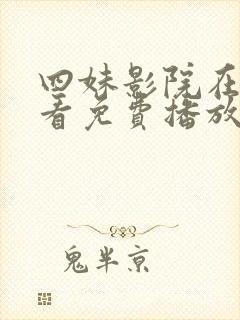 四妹影院在
看免費播放
鬼半京